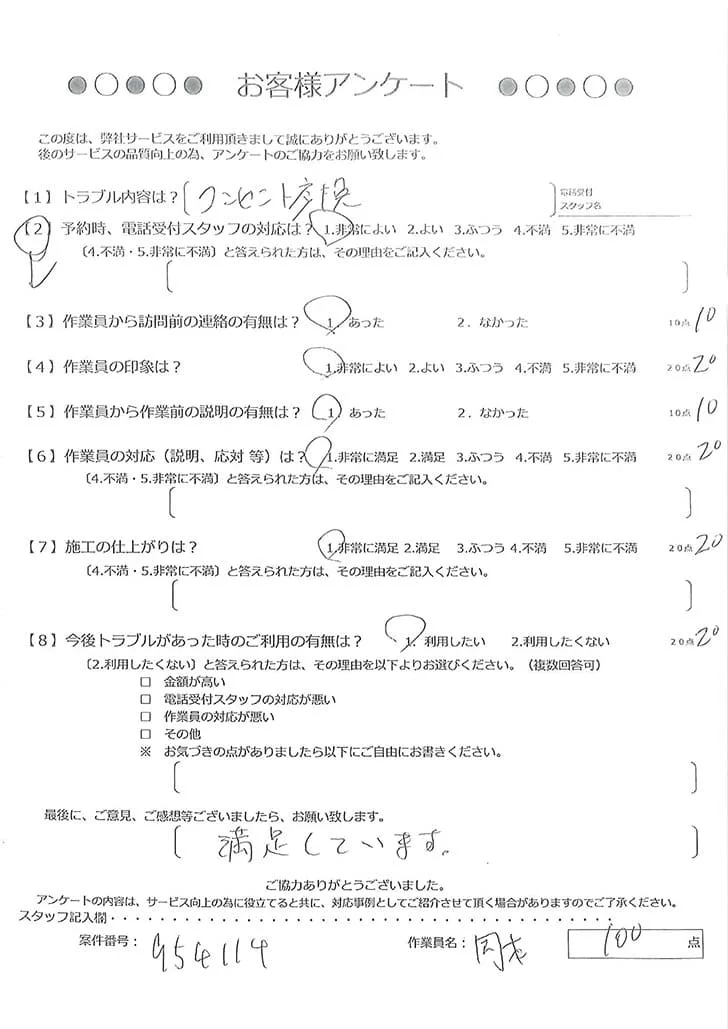 ●○●○● お客様アンケート ●○●○●
この度は、弊社サービスをご利用頂きまして誠にありがとうございます。
後のサービスの品質向上の為、アンケートのご協力をお願い致します。
【1】トラブル内容は？〔コンセント交換〕 電話受付
スタッフ名
【2】予約時、電話受付スタッフの対応は？ 1.非常によい 2.よい 3.ふつう 4.不満 5.非常に不満
〔4.不満・5.非常に不満〕と答えられた方は、その理由をご記入ください。
【3】作業員から訪問前の連絡の有無は？ 1. あった 2. なかった 10点 10
【4】作業員の印象は？ 1.非常によい 2.よい 3.ふつう 4.不満 5.非常に不満 20点 20
【5】作業員から作業前の説明の有無は？ 1. あった 2. なかった 10点 10
【6】作業員の対応（説明、応対 等）は？ 1.非常に満足 2.満足 3.ふつう 4.不満 5.非常に不満 20点 20
〔4.不満・5.非常に不満〕と答えられた方は、その理由をご記入ください。
【7】施工の仕上がりは？ 1.非常に満足 2.満足 3.ふつう 4.不満 5.非常に不満 20点 20
〔4.不満・5.非常に不満〕と答えられた方は、その理由をご記入ください。
【8】今後トラブルがあった時のご利用の有無は？ 1. 利用したい 2.利用したくない 20点 20
〔2.利用したくない〕と答えられた方は、その理由を以下よりお選びください。（複数回答可）
□ 金額が高い
□ 電話受付スタッフの対応が悪い
□ 作業員の対応が悪い
□ その他
※ お気づきの点がありましたら以下にご自由にお書きください。
最後に、ご意見、ご感想等ございましたら、お願い致します。
〔満足しています。〕
ご協力ありがとうございました。
アンケートの内容は、サービス向上の為に役立てると共に、対応事例としてご紹介させて頂く場合がありますのでご了承ください。
スタッフ記入欄・・・・・・・・・・・・・・・・・・・・・・・・・・・・・・・・・・・・・・・・
案件番号： 954114 作業員名： 100 点